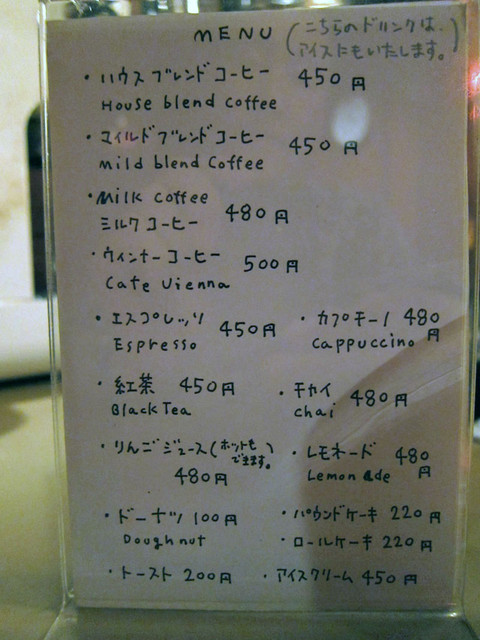 MENU (こちらのドリンクは、
アイスにもいたします。)
・ハウスブレンドコーヒー 450円
House blend coffee
・マイルドブレンドコーヒー 450円
mild blend coffee
・Milk coffee
ミルクコーヒー 480円
・ウィンナーコーヒー 500円
Cafe Vienna
・エスプレッソ 450円
Espresso
・カプチーノ 480円
Cappuccino
・紅茶 450円
Black Tea
・チャイ 480円
chai
・りんごジュース(ホットも
できます。)
480円
・レモネード 480円
Lemonade
・ドーナツ 100円
Doughnut
・パウンドケーキ 220円
・ロールケーキ 220円
・トースト 200円
・アイスクリーム 450円